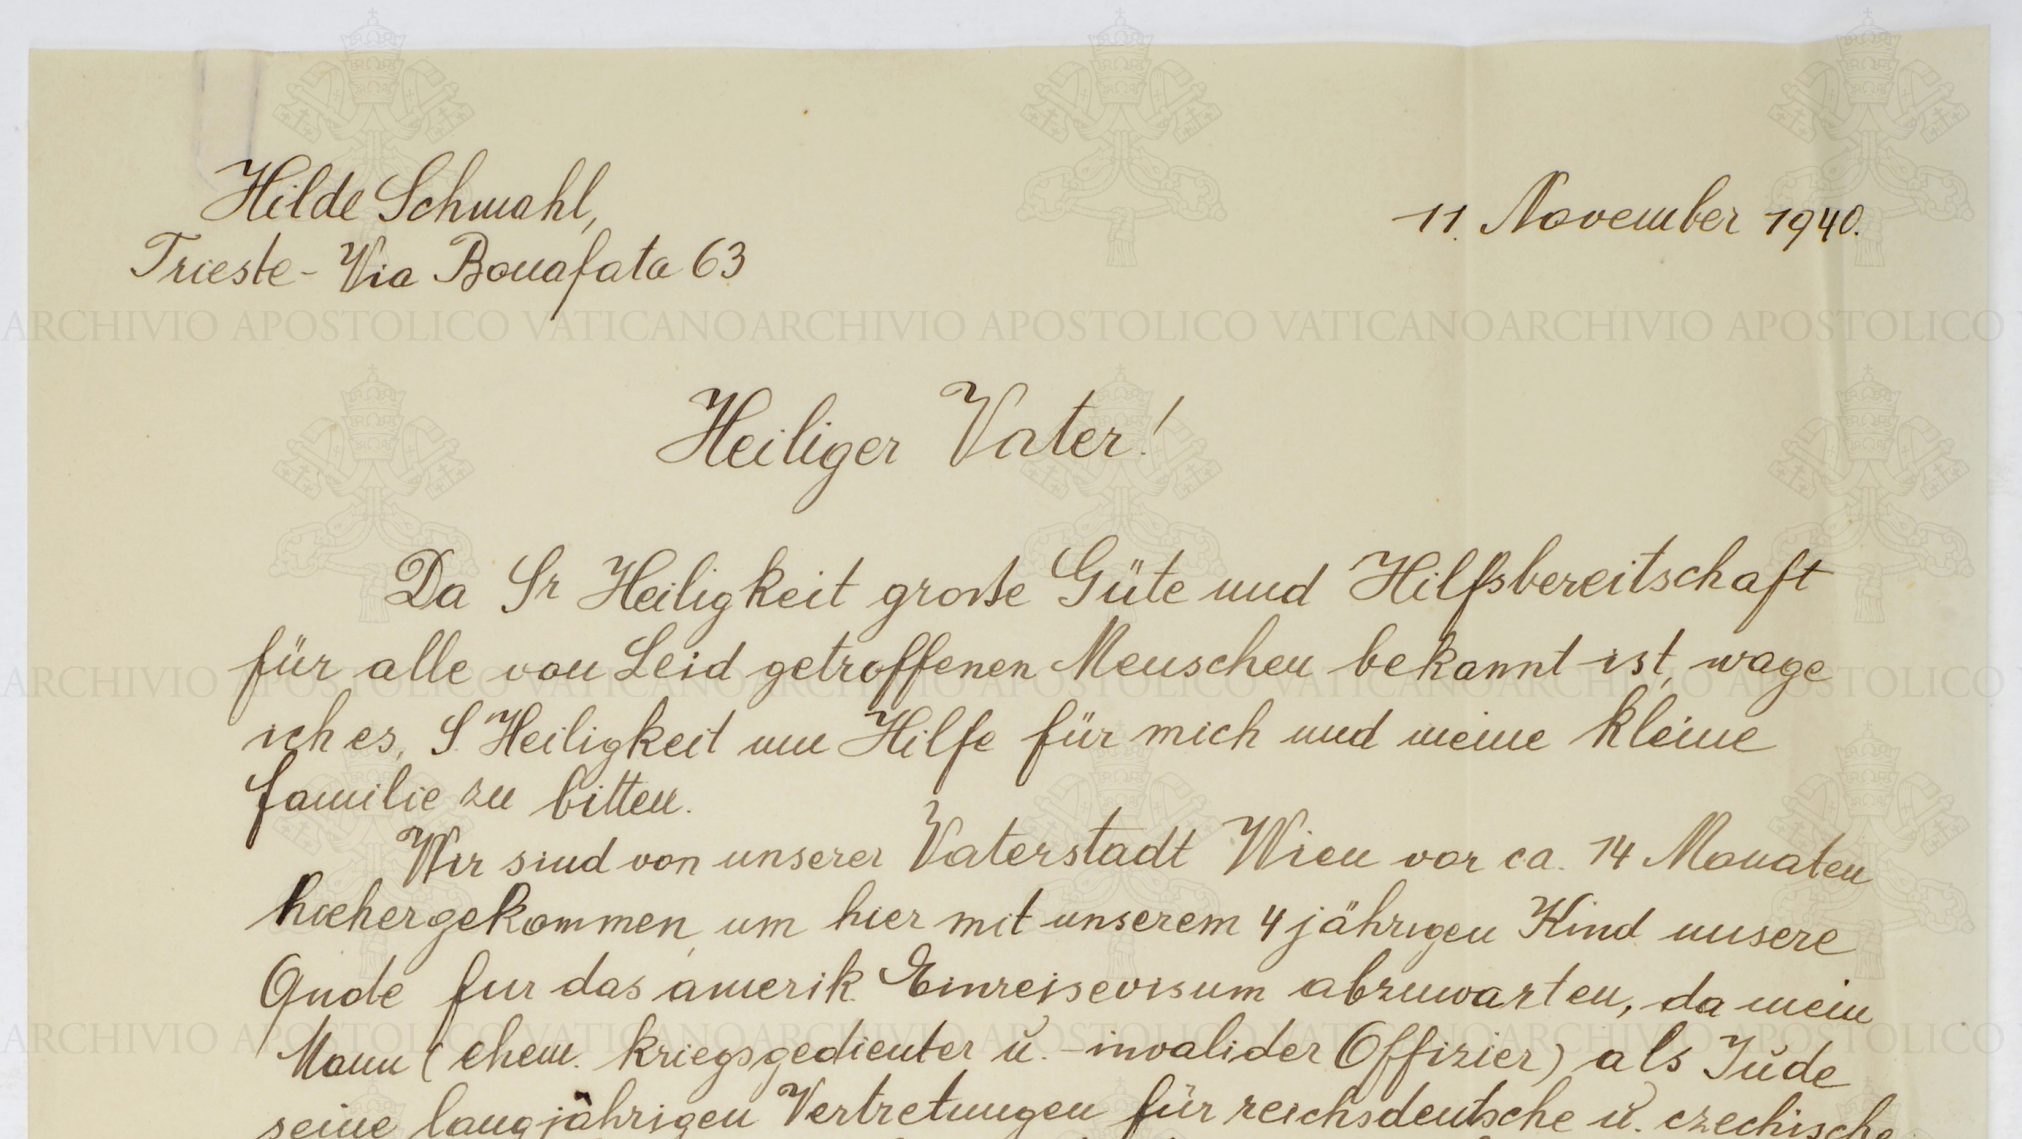 Hilde Schwahl,
11. November 1940.
Trieste - Via Bonafata 63
Heiliger Vater!
Da Sr Heiligkeit große Güte und Hilfsbereitschaft
für alle von Leid getroffenen Menschen bekannt ist, wage
ich es, S. Heiligkeit um Hilfe für mich und meine kleine
Familie zu bitten.
Wir sind von unserer Vaterstadt Wien vor ca. 14 Monaten
hiehergekommen, um hier mit unserem 4 jährigen Kind unsere
Qude fur das amerik. Einreisevisum abzuwarten, da mein
Mann (ehem. kriegsgedienter u. - invalider Offizier) als Jude
seine langjährigen Vertretungen für reichsdeutsche u. czechische
ARCHIVIO APOSTOLICO VATICANO ARCHIVIO APOSTOLICO VATICANO ARCHIVIO APOSTOLICO
ARCHIVIO APOSTOLICO VATICANO ARCHIVIO APOSTOLICO VATICANO ARCHIVIO APOSTOLICO
ARCHIVIO APOSTOLICO VATICANO ARCHIVIO APOSTOLICO VATICANO ARCHIVIO APOSTOLICO